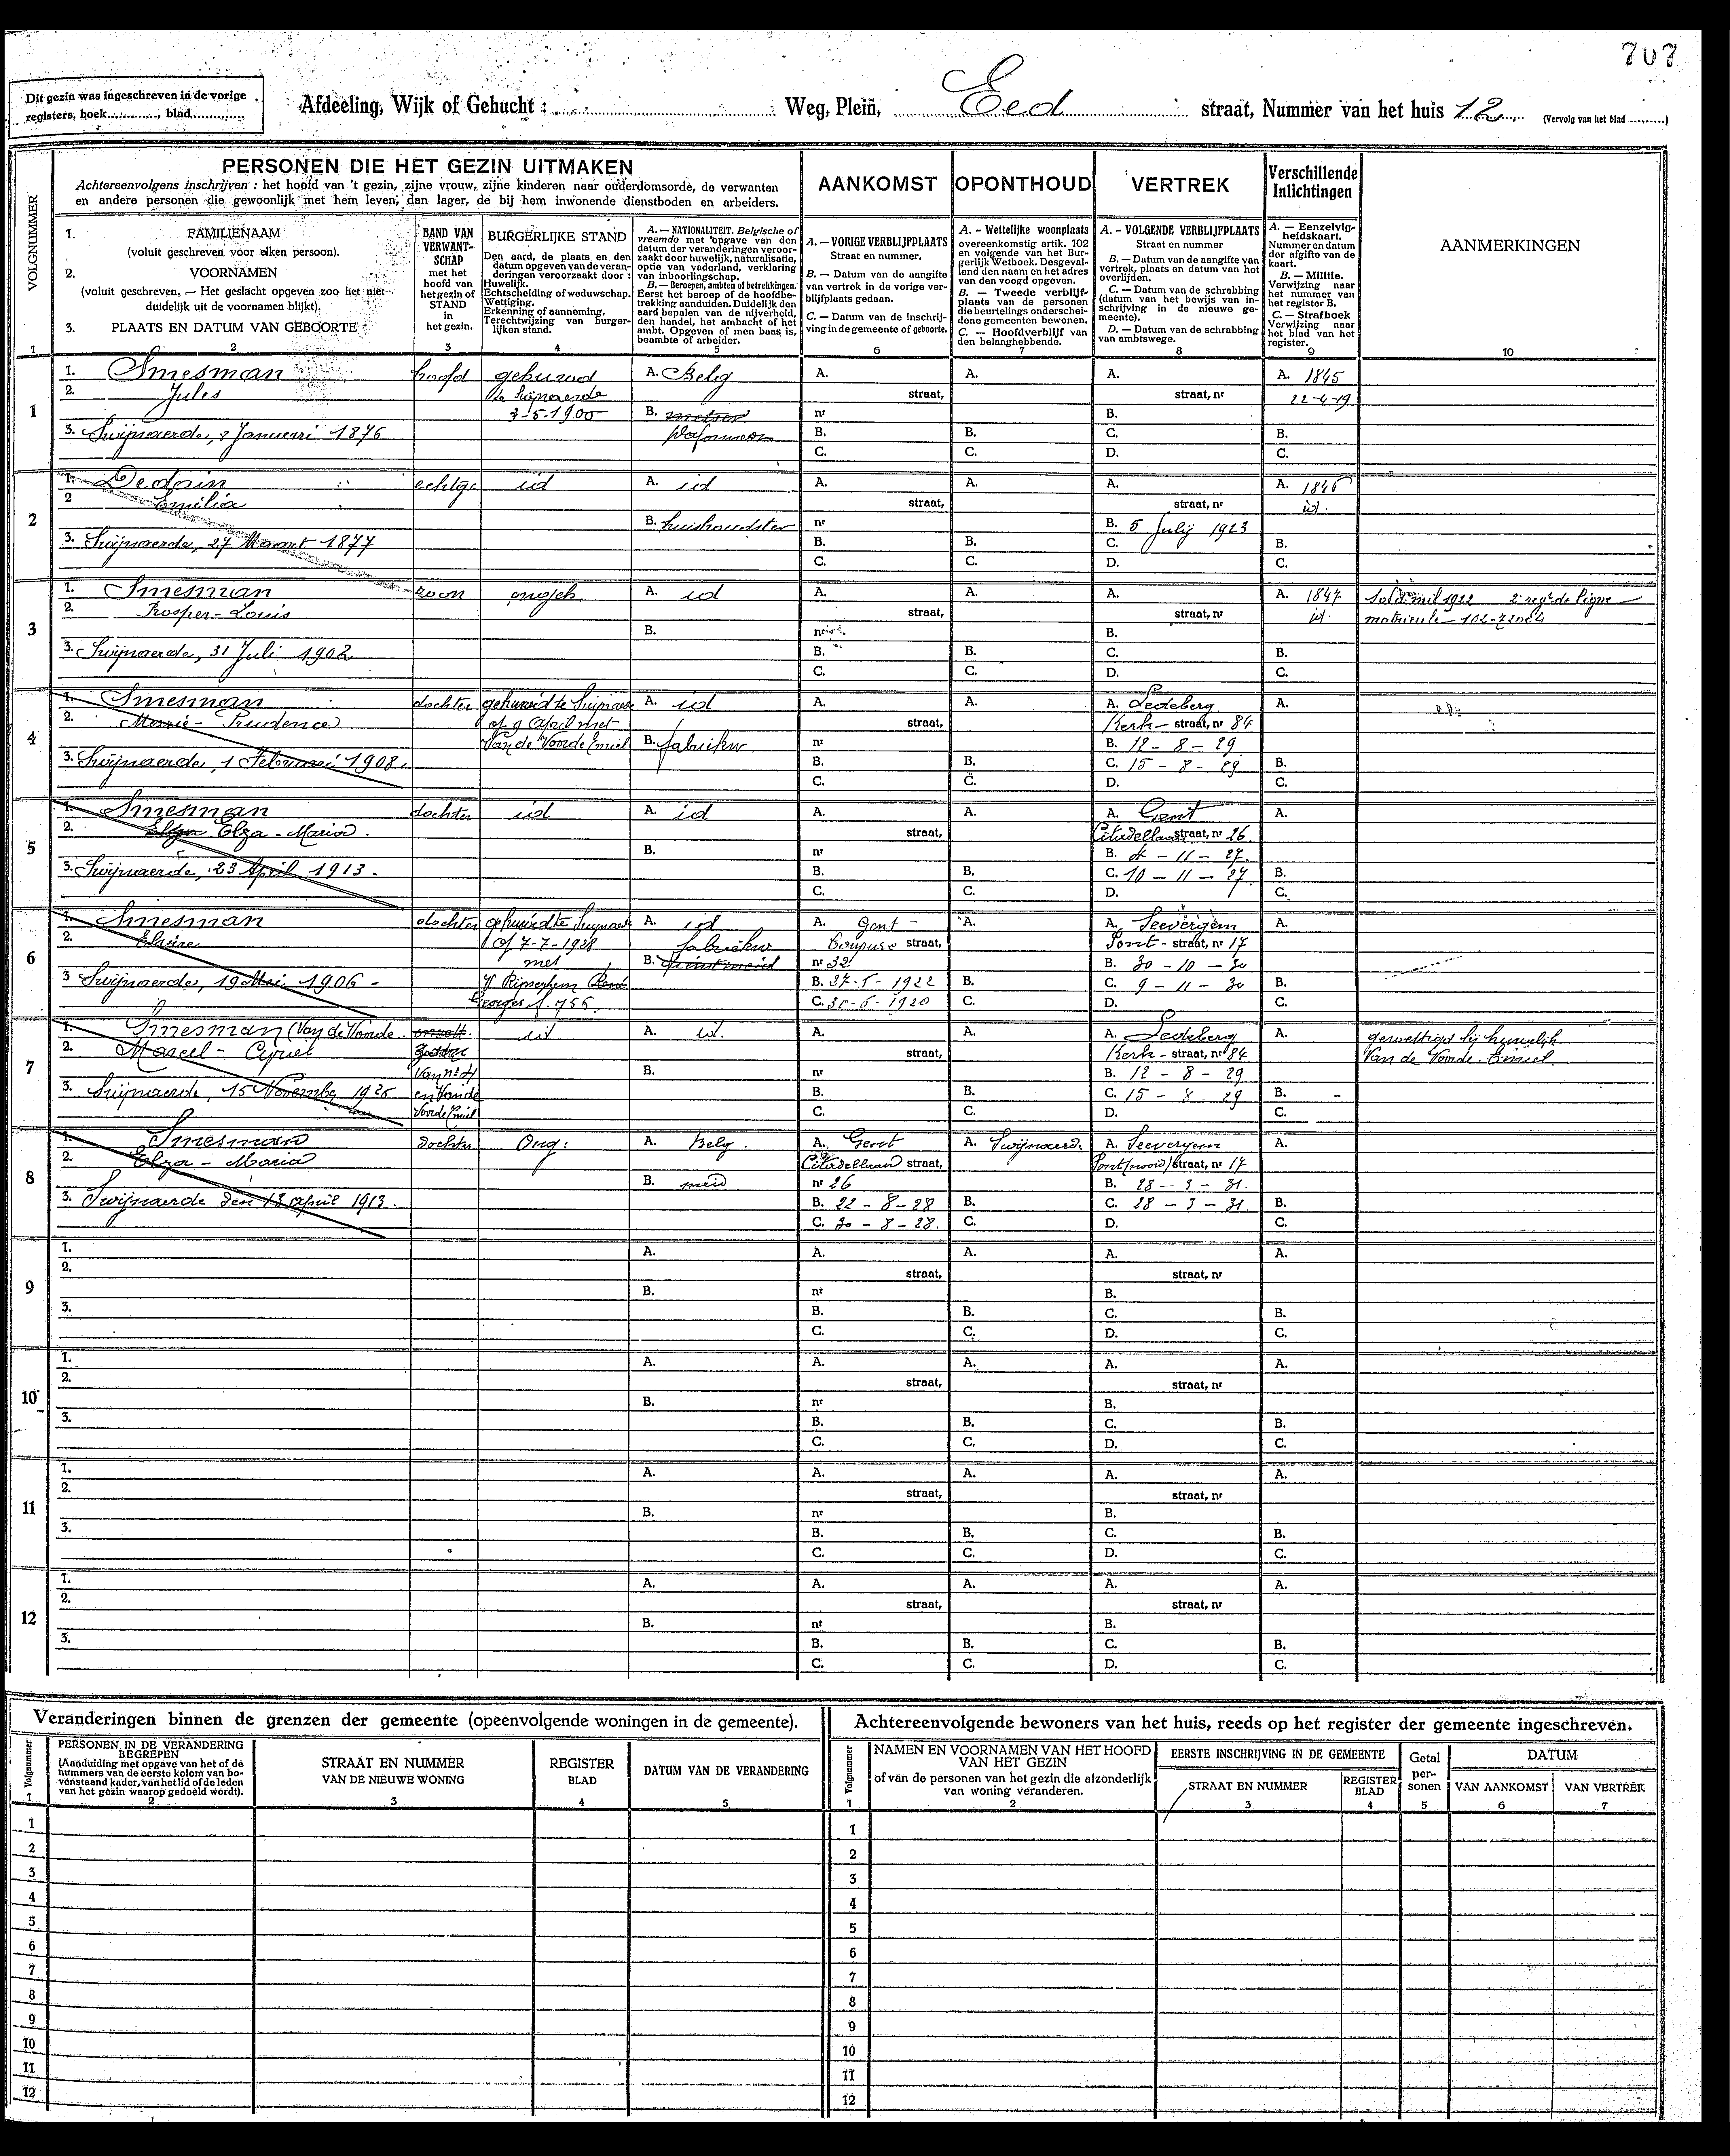 707
Dit gezin was ingeschreven in de vorige
registers, boek............, blad..............
Afdeeling, Wijk of Gehucht : Weg, Plein, Eed straat, Nummer van het huis 12 (Vervolg van het blad .........)
PERSONEN DIE HET GEZIN UITMAKEN
Achtereenvolgens inschrijven : het hoofd van 't gezin, zijne vrouw, zijne kinderen naar ouderdomsorde, de verwanten
en andere personen die gewoonlijk met hem leven, dan lager, de bij hem inwonende dienstboden en arbeiders.
AANKOMST
OPONTHOUD
VERTREK
Verschillende
Inlichtingen
AANMERKINGEN
VOLGNUMMER
1. FAMILIENAAM
(voluit geschreven voor elken persoon).
2. VOORNAMEN
(voluit geschreven. — Het geslacht opgeven zoo het niet
duidelijk uit de voornamen blijkt).
3. PLAATS EN DATUM VAN GEBOORTE
BAND VAN
VERWANT-
SCHAP
met het
hoofd van
het gezin of
STAND
in
het gezin.
BURGERLIJKE STAND
Den aard, de plaats en den
datum opgeven van de veran-
deringen veroorzaakt door :
Huwelijk.
Echtscheiding of weduwschap.
Wettiging.
Erkenning of aanneming.
Terechtwijzing van burger-
lijken stand.
A. — NATIONALITEIT. Belgische of
vreemde met opgave van den
datum der veranderingen veroor-
zaakt door huwelijk, naturalisatie,
optie van vaderland, verklaring
van inboorlingschap.
B. — Beroepen, ambten of betrekkingen.
Eerst het beroep of de hoofdbe-
trekking aanduiden. Duidelijk den
aard bepalen van de nijverheid,
den handel, het ambacht of het
ambt. Opgeven of men baas is,
beambte of arbeider.
A. — VORIGE VERBLIJFPLAATS
Straat en nummer.
B. — Datum van de aangifte
van vertrek in de vorige ver-
blijfplaats gedaan.
C. — Datum van de inschrij-
ving in de gemeente of geboorte.
A. - Wettelijke woonplaats
overeenkomstig artik. 102
en volgende van het Bur-
gerlijk Wetboek. Desgeval-
lend den naam en het adres
van den voogd opgeven.
B. — Tweede verblijf-
plaats van de personen
die beurtelings onderschei-
dene gemeenten bewonen.
C. — Hoofdverblijf van
den belanghebbende.
A. - VOLGENDE VERBLIJFPLAATS
Straat en nummer
B. — Datum van de aangifte van
vertrek, plaats en datum van het
overlijden.
C. — Datum van de schrabbing
(datum van het bewijs van in-
schrijving in de nieuwe ge-
meente).
D. — Datum van de schrabbing
van ambtswege.
A. — Eenzelvig-
heidskaart.
Nummer en datum
der afgifte van de
kaart.
B. — Militie.
Verwijzing naar
het nummer van
het register B.
C. — Strafboek
Verwijzing naar
het blad van het
register.
1 2 3 4 5 6 7 8 9 10
1
1. Smesman hoofd gehuwd A. Belg A. A. A. A. 1845
2. Jules te Swijnaerde straat, straat, nr 22-4-19
3-5-1900 B. metser nr B.
3. Swijnaerde, 8 Januari 1876 B. B. C. B.
C. C. D. C.
2
1. Dedain echtge id A. id A. A. A. A. 1846
2 Emilia straat, straat, nr id.
B. huishoudster nr B. 5 Julij 1923
3. Swijnaerde, 27 Maart 1877 B. B. C. B.
C. C. D. C.
3
1. Smesman zoon ongeh. A. id A. A. A. A. 1847 Sold. mil 1922 2e regt de ligne
2. Prosper-Louis straat, straat, nr id. matricule 102-72064
B. nr B.
3. Swijnaerde, 31 Juli 1902 B. B. C. B.
C. C. D. C.
4
1. Smesman dochter gehuwd te Swijnaerde A. id A. A. A. Ledeberg A.
2. Marie - Prudence op 9 April met straat, Kerk - straat, nr 84
Van de Voorde Emiel B. fabriekw. nr B. 12 - 8 - 29
3. Swijnaerde, 1 Februari 1908. B. B. C. 15 - 8 - 29 B.
C. C. D. C.
5
1. Smesman dochter id A. id A. A. A. Gent A.
2. Elza - Maria. straat, Citadellaan straat, nr 26
B. nr B. 4 - 11 - 27.
3. Swijnaerde, 23 April 1913. B. B. C. 10 - 11 - 27 B.
C. C. D. C.
6
1. Smesman dochter gehuwd te Swijnaerde A. id A. Gent A. A. Seevergem A.
2. Elvire op 7-7-1928 fabriekw Coupure straat, Pont - straat, nr 17
met B. dienstmeid nr 32 B. 30 - 10 - 30
3 Swijnaerde, 19 Mei 1906 - René B. 27-5-1922 B. C. 9 - 11 - 30 B.
Georges f. 756. C. 30-6-1920 C. D. C.
7
1. Smesman (Van de Voorde id A. id. A. A. A. Ledeberg A. gewettigd bij huwelijk
2. Marcel - Cyriel straat, Kerk - straat, nr 84 Van de Voorde Emiel
Van n° 4 B. nr B. 12 - 8 - 29
3. Swijnaerde, 15 November 1926 en Vande B. B. C. 15 - 8 29 B. -
Voorde Emiel C. C. D. C.
8
1. Smesman dochter Ong: A. Belg. A. Gent A. Swijnaerde A. Seevergem A.
2. Elza - Maria Citadellaan straat, Pont (noord) straat, nr 17
B. meid nr 26 B. 28 - 3 - 31.
3. Swijnaerde den 13 april 1913. B. 22 - 8 - 28 B. C. 28 - 3 - 31. B.
C. 30 - 8 - 28. C. D. C.
9
1. A. A. A. A. A.
2. straat, straat, nr
B. nr B.
3. B. B. C. B.
C. C. D. C.
10
1. A. A. A. A. A.
2. straat, straat, nr
B. nr B.
3. B. B. C. B.
C. C. D. C.
11
1. A. A. A. A. A.
2. straat, straat, nr
B. nr B.
3. B. B. C. B.
C. C. D. C.
12
1. A. A. A. A. A.
2. straat, straat, nr
B. nr B.
3. B. B. C. B.
C. C. D. C.
Veranderingen binnen de grenzen der gemeente (opeenvolgende woningen in de gemeente).
Volgnummer
PERSONEN IN DE VERANDERING
BEGREPEN
(Aanduiding met opgave van het of de
nummers van de eerste kolom van bo-
venstaand kader, van het lid of de leden
van het gezin waarop gedoeld wordt).
STRAAT EN NUMMER
VAN DE NIEUWE WONING
REGISTER
BLAD
DATUM VAN DE VERANDERING
1 2 3 4 5
1
2
3
4
5
6
7
8
9
10
11
12
Achtereenvolgende bewoners van het huis, reeds op het register der gemeente ingeschreven.
Volgnummer
NAMEN EN VOORNAMEN VAN HET HOOFD
VAN HET GEZIN
of van de personen van het gezin die afzonderlijk
van woning veranderen.
EERSTE INSCHRIJVING IN DE GEMEENTE
STRAAT EN NUMMER
REGISTER
BLAD
Getal
per-
sonen
DATUM
VAN AANKOMST
VAN VERTREK
1 2 3 4 5 6 7
1
2
3
4
5
6
7
8
9
10
11
12